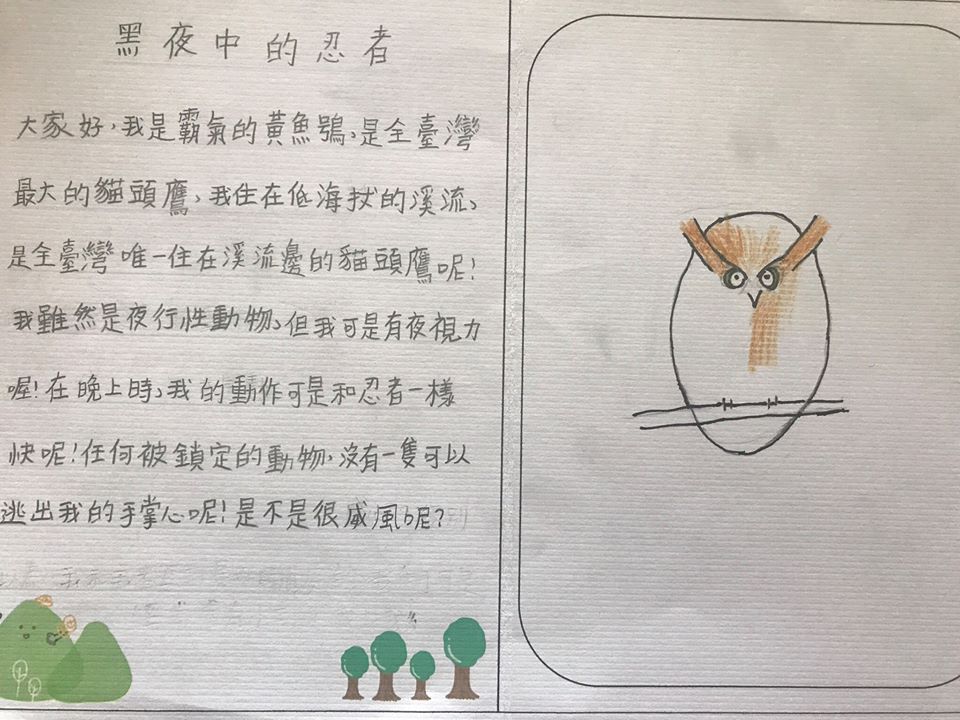 黑夜中的忍者
大家好,我是霸氣的黃魚鴞,是全臺灣
最大的貓頭鷹,我住在低海拔的溪流,
是全臺灣唯一住在溪流邊的貓頭鷹呢!
我雖然是夜行性動物,但我可是有夜視力
喔!在晚上時,我的動作可是和忍者一樣
快呢!任何被鎖定的動物,沒有一隻可以
逃出我的手掌心呢!是不是很威風呢?